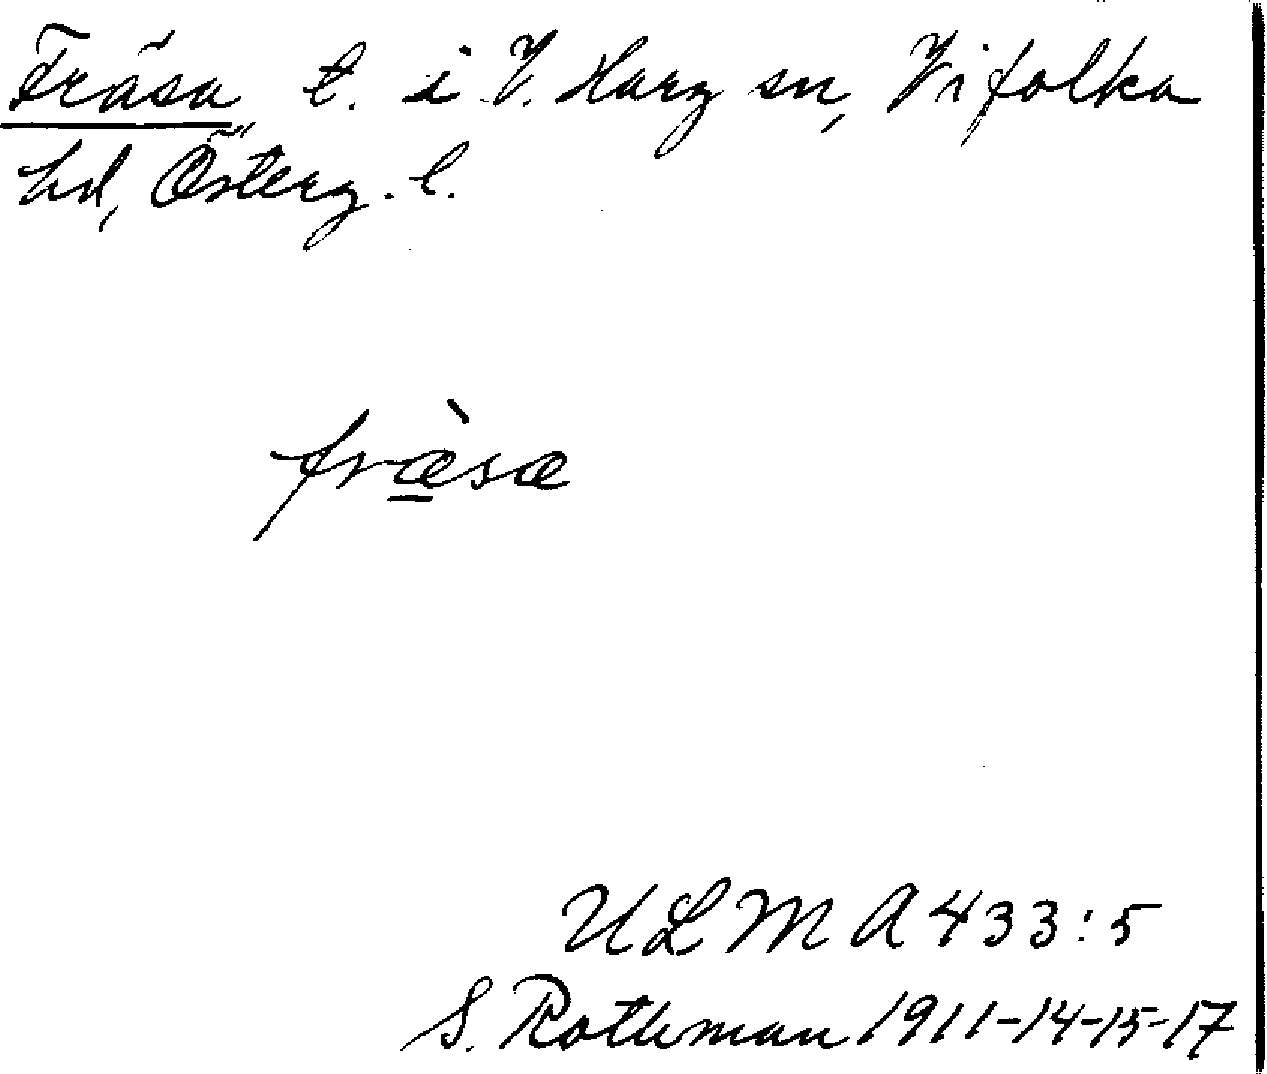 Fräsa t. i V. Harg sn, Vifolka
hd, Österg. l.
fræ̲̀sæ
ULMA 433:5
S. Rothman 1911-14-15-17